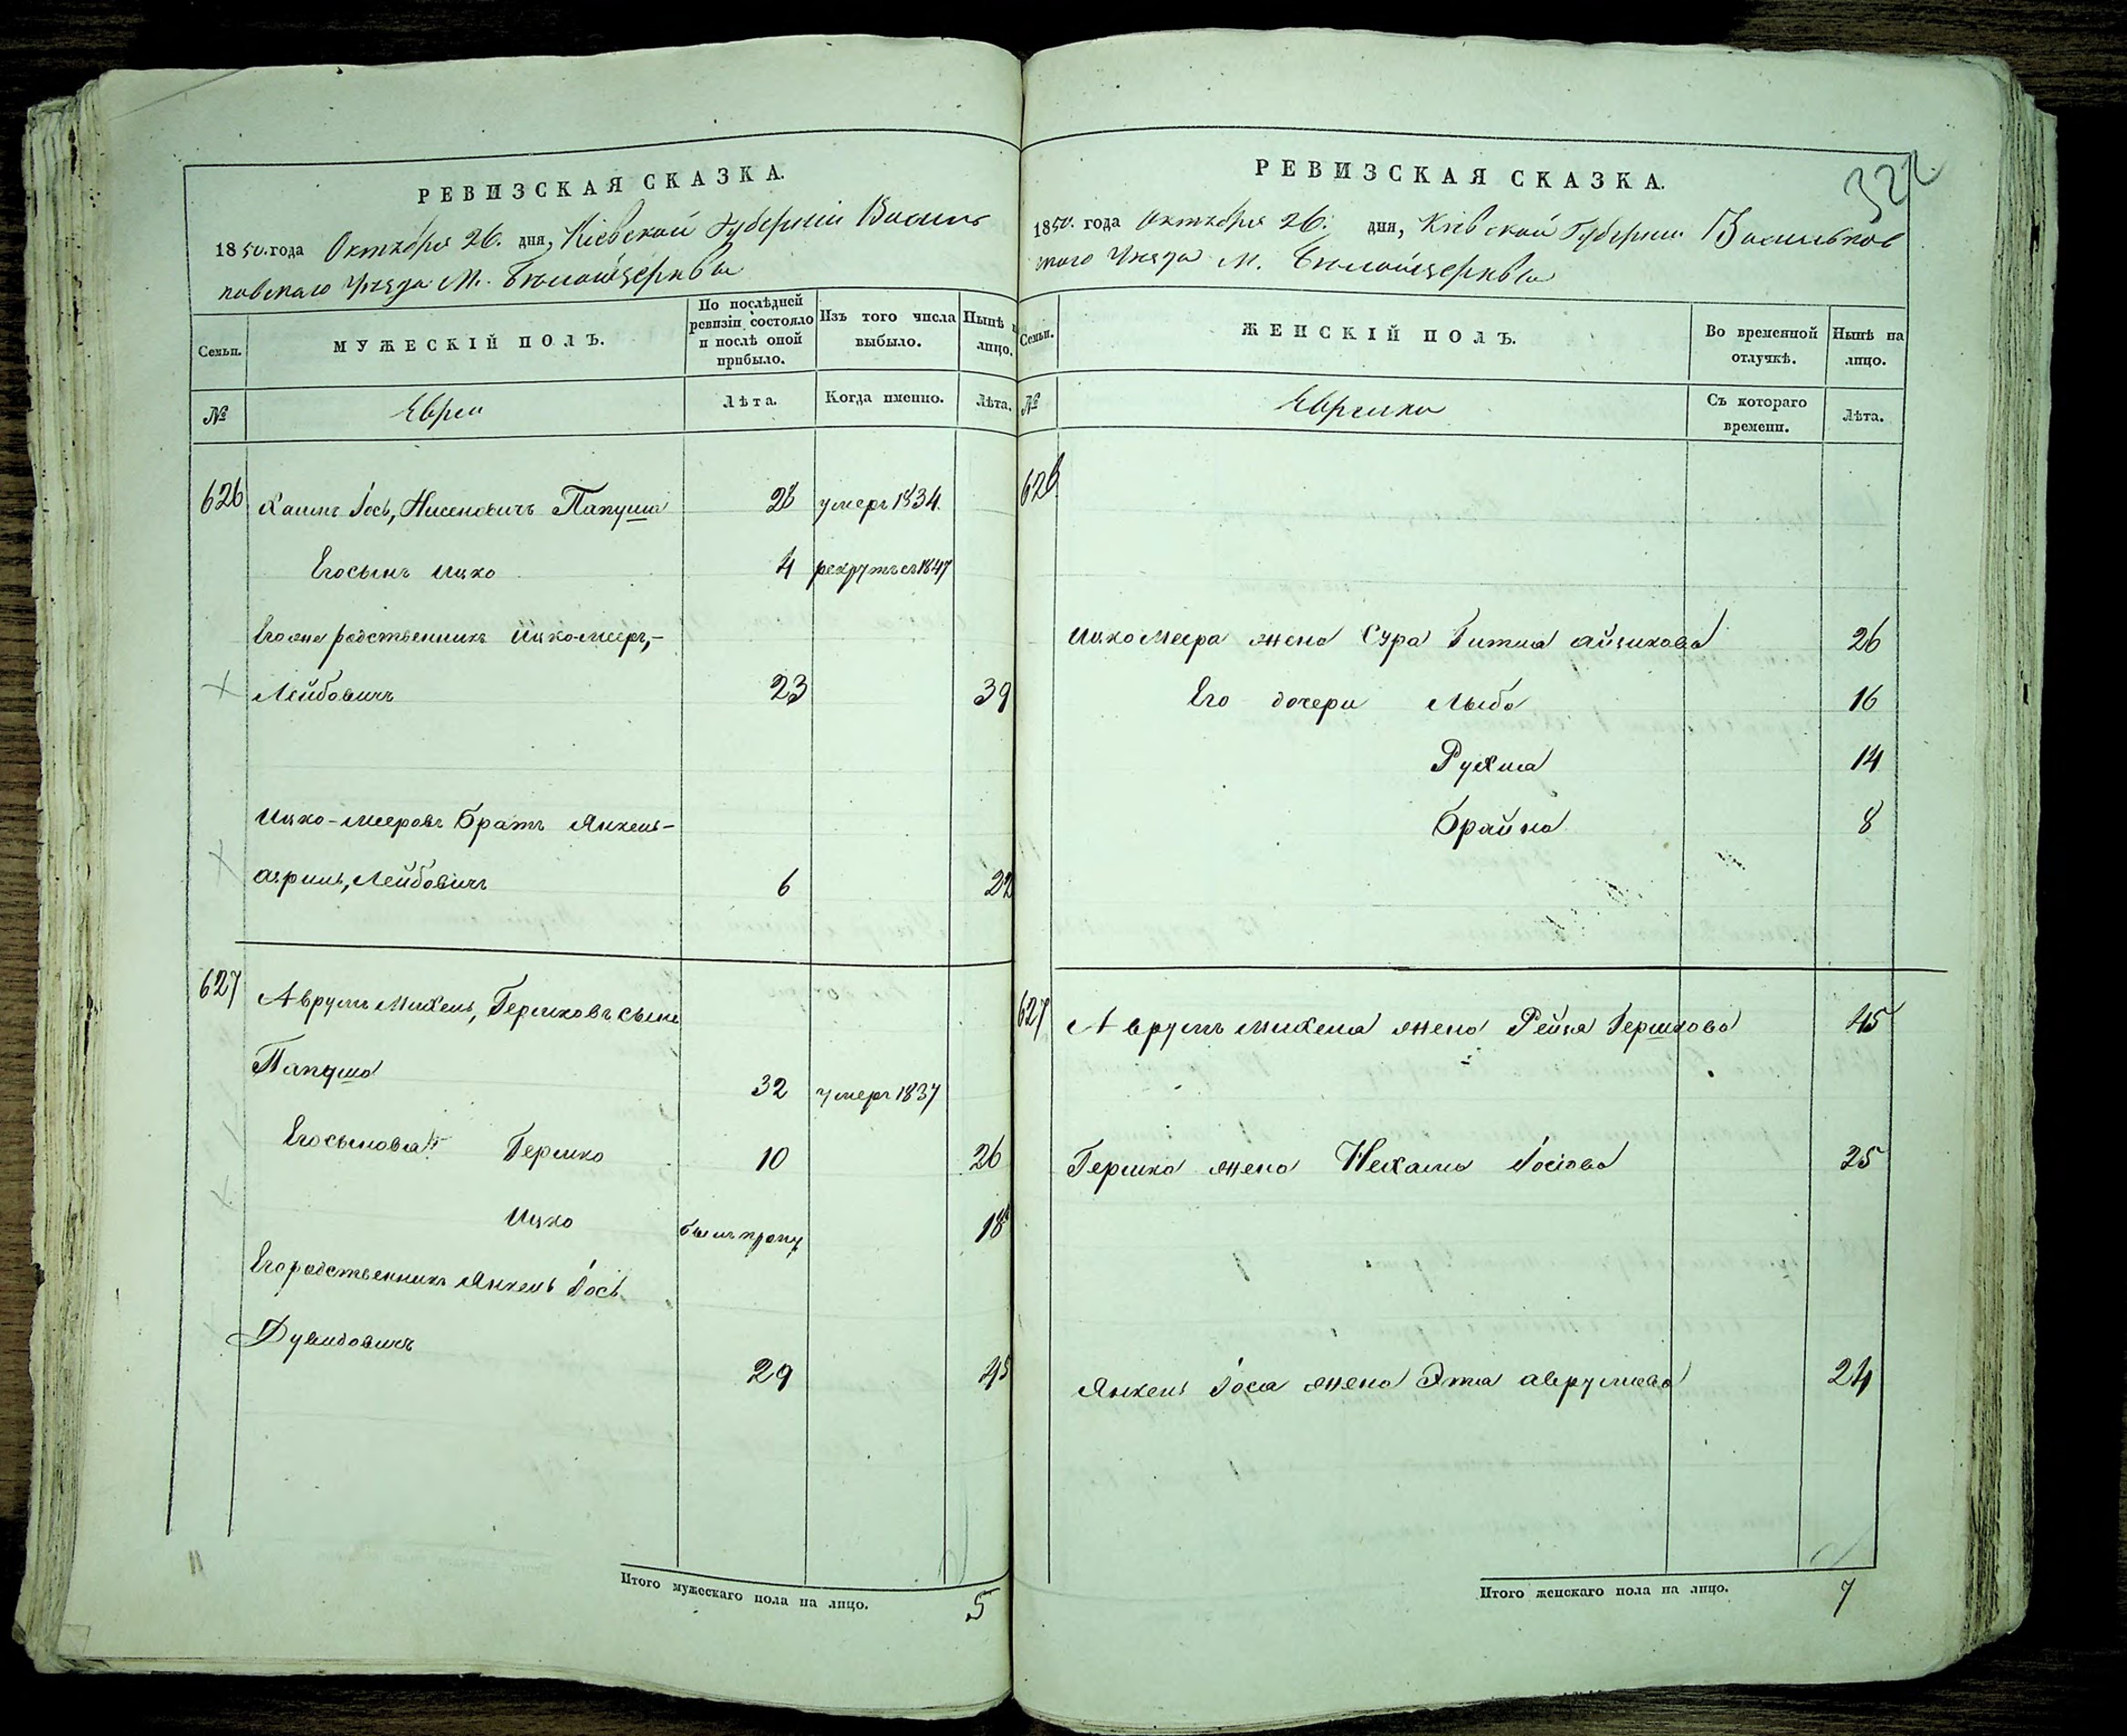 РЕВИЗСКАЯ СКАЗКА.
1850. года Октября 26. дня, Кіевской Губерніи Василь
ковскаго Уѣзда М. Бѣлойцеркви
Семьи.
МУЖЕСКІЙ ПОЛЪ.
По послѣдней ревизіи состояло и послѣ оной прибыло.
Изъ того числа выбыло.
Нынѣ на лицо.
№
Евреи
Лѣта.
Когда именно.
Лѣта.
626 Хаимъ Іось, Нисеновичъ Папуша 28 умеръ 1834.
Его сынъ Ицко 4 рекрутъ съ 1847
Его же родственникъ Ицко-Мееръ,-
Лейбовичъ 23 39
Ицко-Мееровъ братъ Янкель-
Лейбовичъ 6 22
627 Аврумъ Михель, Гершковъ сынъ
Папуша 32 умеръ 1837
Его сыновья: Гершко 10 26
Ицко былъ проп 18
Его родственникъ Янкель Іось
Дувидовичъ 29 45
Итого мужескаго пола на лицо. 5
322
РЕВИЗСКАЯ СКАЗКА.
1850. года Октября 26. дня, Кіевской Губерніи Васильков
скаго Уѣзда М. Бѣлойцеркви
Семьи.
ЖЕНСКІЙ ПОЛЪ.
Во временной отлучкѣ.
Нынѣ на лицо.
№
Еврейки
Съ котораго времени.
Лѣта.
626
Ицко Меера жена Сура Гитля Айзикова 26
Его дочери Лыба 16
Рухля 14
Брайна 8
627 Аврумъ Михеля жена Рейзя Гершкова 45
Гершка жена Нехама Іосіова 25
Янкель Іося жена Эта Аврумова 24
Итого женскаго пола на лицо. 7